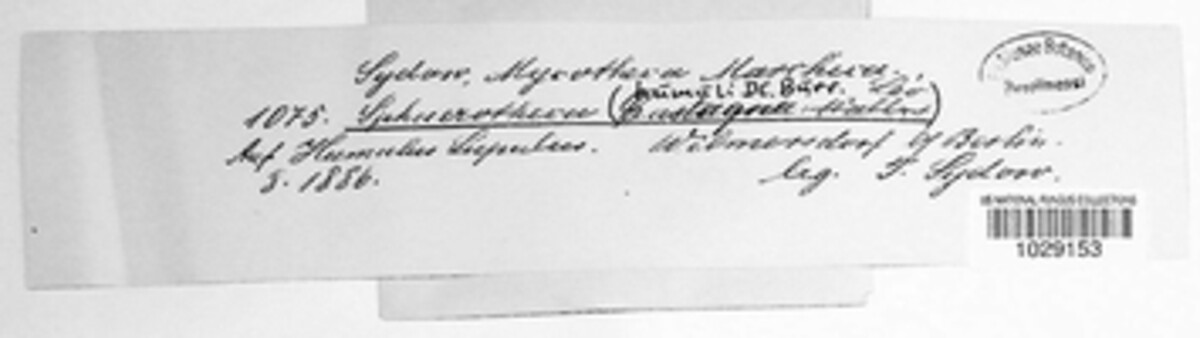 Sydow, Mycotheca Marchica.
humuli DC. Burr. Lév
1075. Sphaerotheca (Castagnei
Auf Humulus Lupulus. Wilmersdorf b/Berlin.
8. 1886. leg. P. Sydow.
US NATIONAL FUNGUS COLLECTIONS
1029153